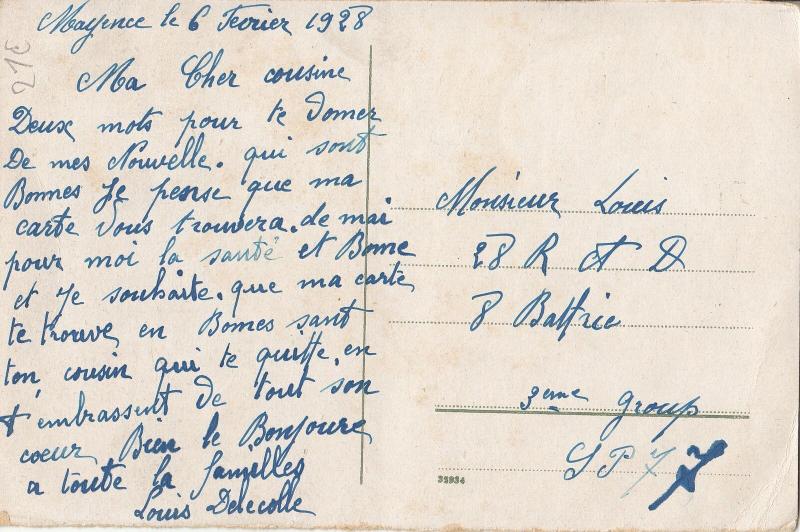 Mayence le 6 Fevrier 1928
21E
Ma Cher cousine
Deux mots pour te Domer
De mes Nouvelle. qui sont
Bonnes Je pense que ma
carte vous trouvera. de mai
pour moi la santé et Bome
et Je souhaite. que ma carte
te trouve en Bomes sant
ton cousin qui te quitte. en
t'embrassent De tout son
coeur Bien le Bonjoure
a toute la familles
Louis Delecolle
Monsieur Louis
28 R A D
8 Battrie
3eme Group
SP 77
32934